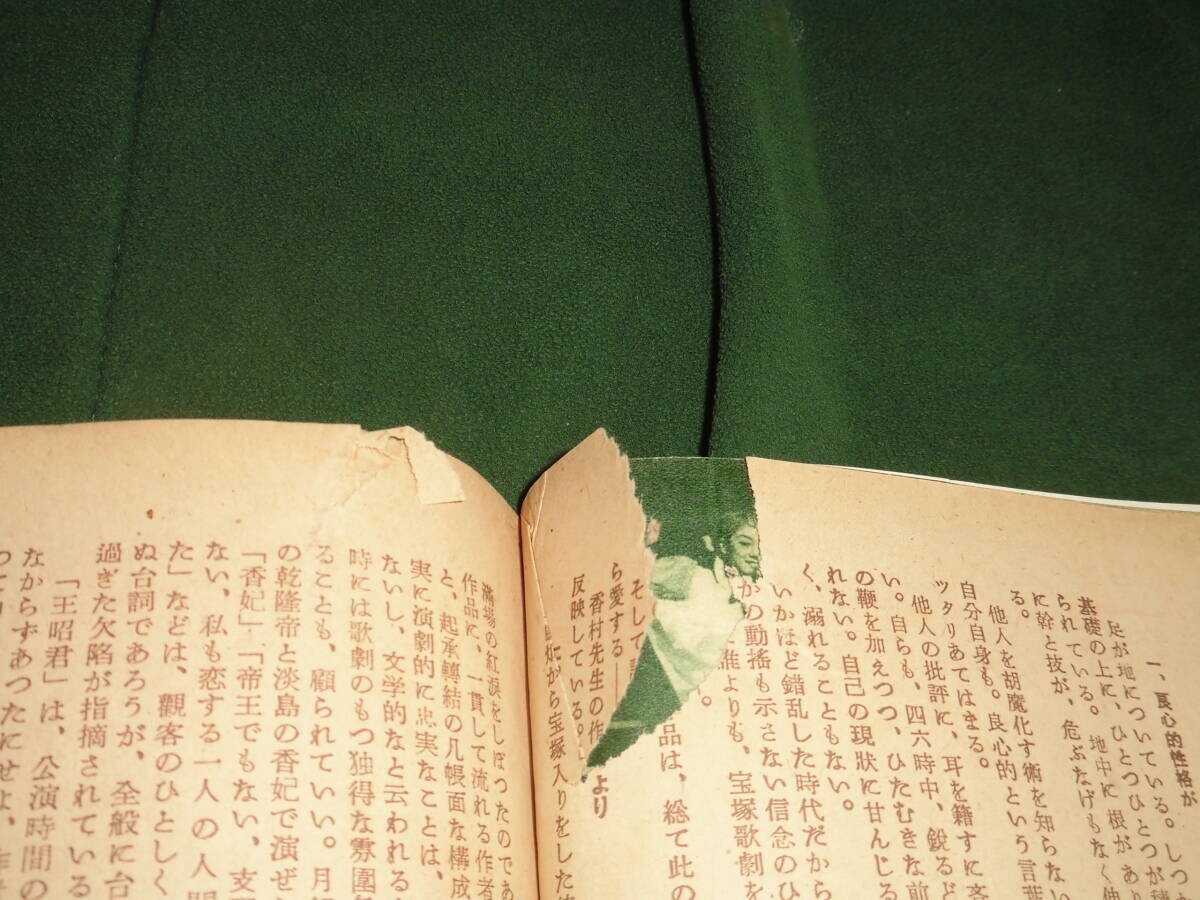 一、良心的性格が
足が地についている。しつか
基礎の上に、ひとつひとつが積
られている。地中に根があり
に幹と技が、危ぶなげもなく伸
る。
他人を胡魔化す術を知らない
自分自身も。良心的という言葉
ツタリあてはまる。
他人の批評に、耳を籍すに吝
い。自らも、四六時中、鋭るど
の鞭を加えつつ、ひたむきな前
れない。自己の現狀に甘んじる
く、溺れることもない。
いかほど錯乱した時代だから
かの動搖も示さない信念のひ
誰よりも、宝塚歌劇を
。
品は、総て此の
より
そして
ら愛する――
香村先生の作
反映している。
だから宝塚入りをした
満場の紅淚をしぼつたのであ
作品に、一貫して流れる作者
と、起承轉結の几帳面な構成
実に演劇的に忠実なことは、
ないし、文学的なと云われる
時には歌劇のもつ独得な雰囲気
ることも、顧られていい。月組
の乾隆帝と淡島の香妃で演ぜ
「香妃」「帝王でもない、支
ない、私も恋する一人の人間
た」などは、觀客のひとしく
ぬ台詞であろうが、全般に台
過ぎた欠陷が指摘されている
「王昭君」は、公演時間の
なからずあつたにせよ、